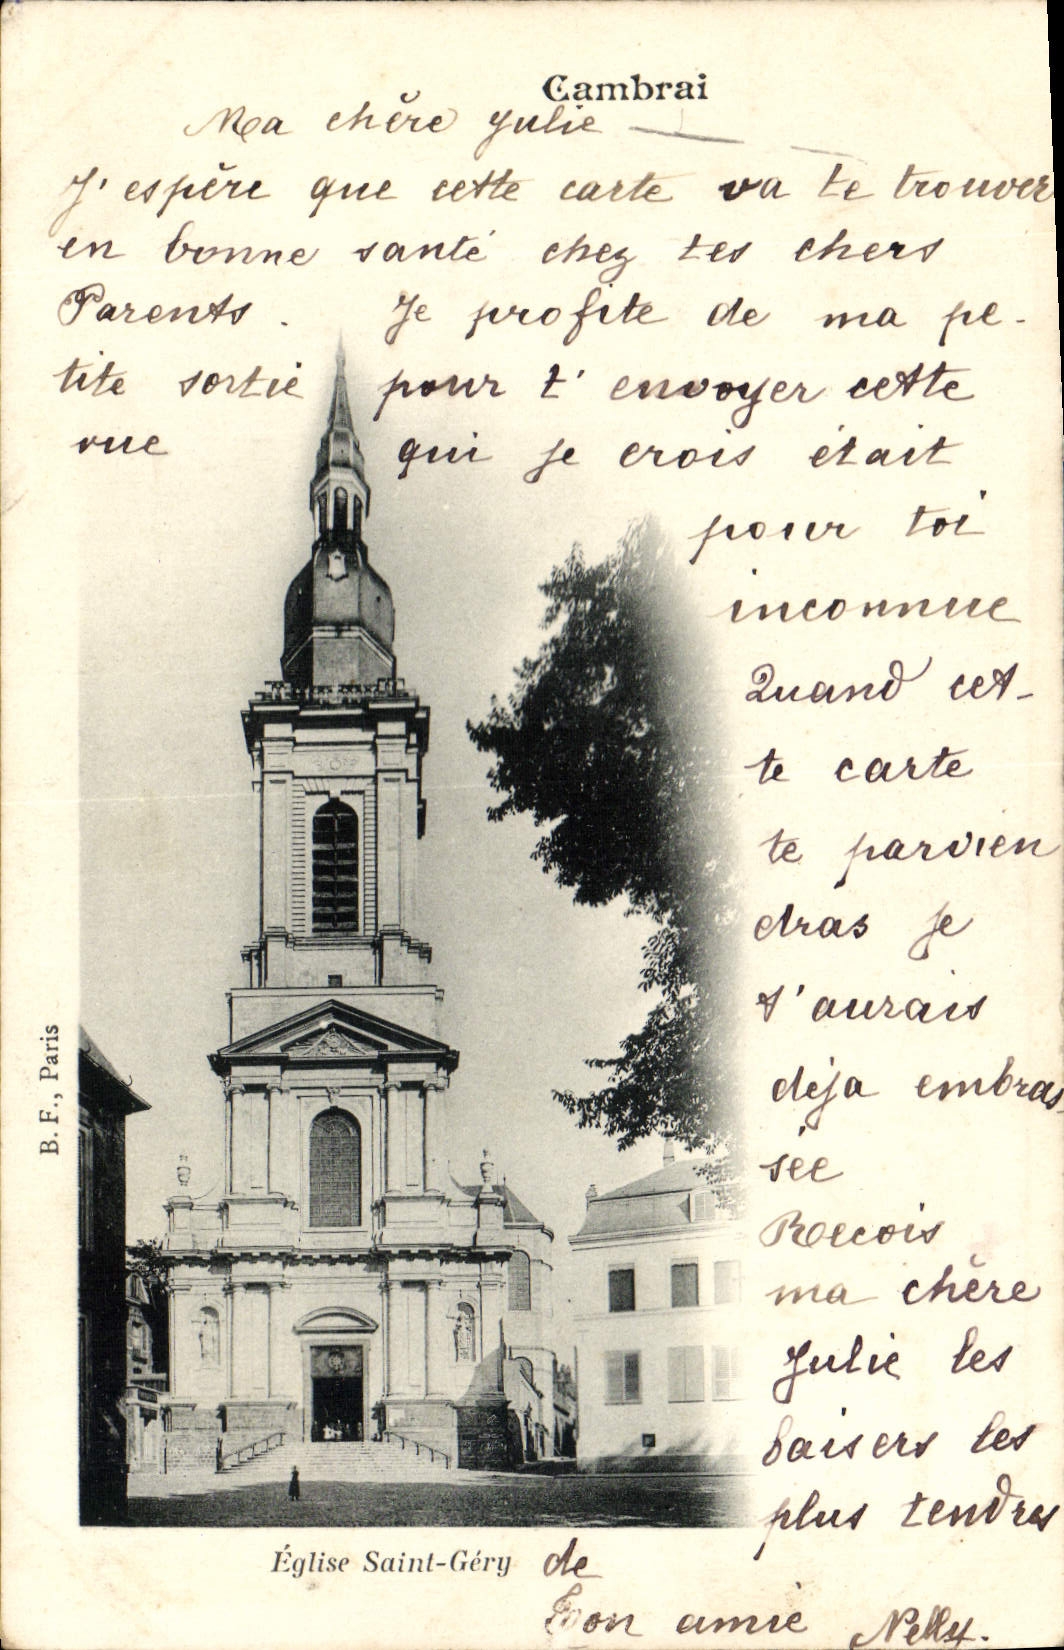 Cambrai
Ma chère Julie
J'espère que cette carte va te trouver
en bonne santé chez tes chers
Parents. Je profite de ma pe-
tite sortie pour t'envoyer cette
vue qui je crois était
pour toi
inconnue
Quand cet-
te carte
te parvien
dras je
t'aurais
déja embras
sée
Recois
ma chère
Julie les
baisers les
plus tendres
de
Ton amie Nelly.
Église Saint-Géry
B. F., Paris